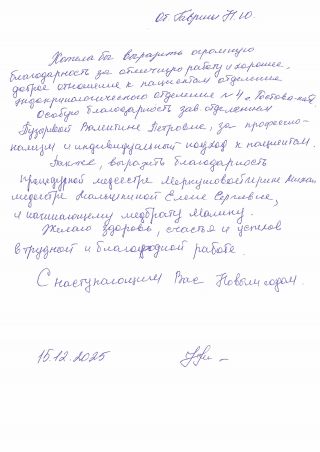 От Гаврин Н.Ю.
Хотела бы выразить огромную
благодарность за отличную работу и хорошее,
доброе отношение к пациентам отделение
эндокринологического отделение №4 г. Ростова-на-
Особую благодарность зав. отделением
Пузыревой Валентине Петровне, за профессио-
нализм и индивидуальный подход к пациентам.
Также, выразить благодарность
процедурной медсестре Меркуловой
медсестре Елене Сергеевне,
и начинающему медбрату Малику.
Желаю здоровья, счастья и успехов
в трудной и благородной работе.
С наступающим Вас Новым годом.
15.12.2025